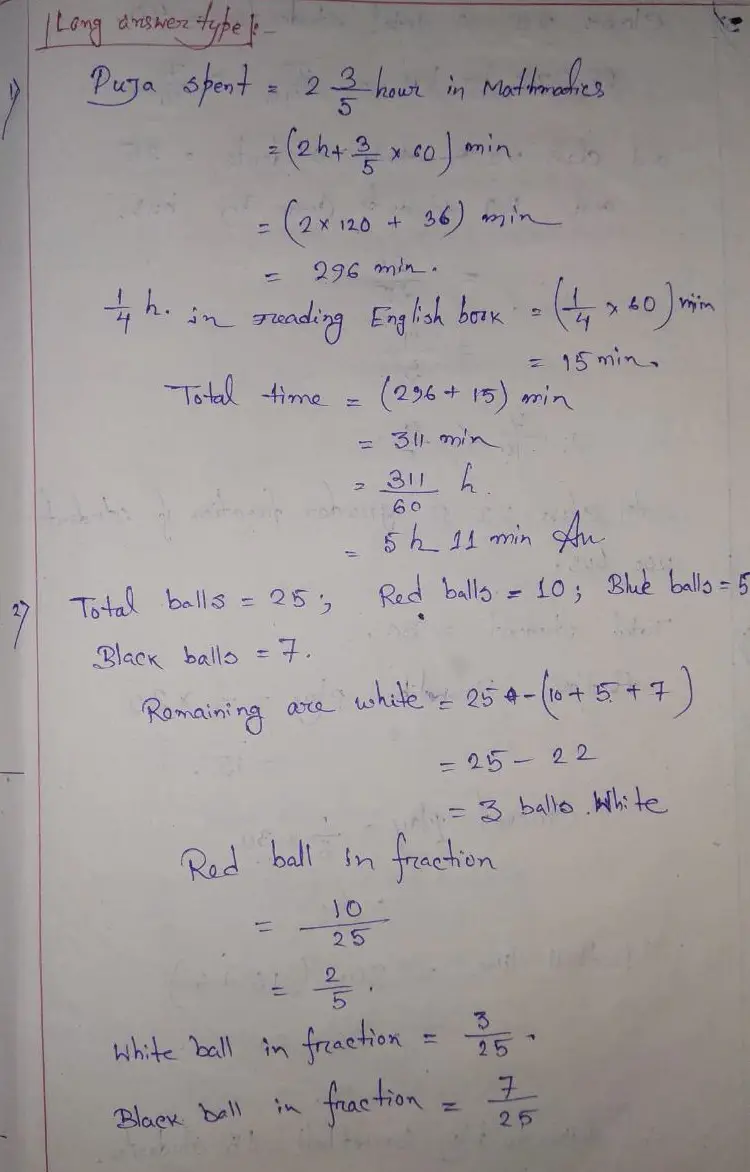 Long answer type :-
1) Puja spent = 2 3/5 hour in Mathmatics
= (2h + 3/5 × 60) min.
= (2 × 120 + 36) min
= 296 min.
1/4 h. in reading English book = (1/4 × 60) min
= 15 min.
Total time = (296 + 15) min
= 311 min
= 311/60 h.
= 5 h 11 min An
2) Total balls = 25 ; Red balls = 10 ; Blue balls = 5
Black balls = 7.
Remaining are white = 25 - (10 + 5 + 7)
= 25 - 22
= 3 balls White
Red ball in fraction
= 10/25
= 2/5.
White ball in fraction = 3/25.
Black ball in fraction = 7/25